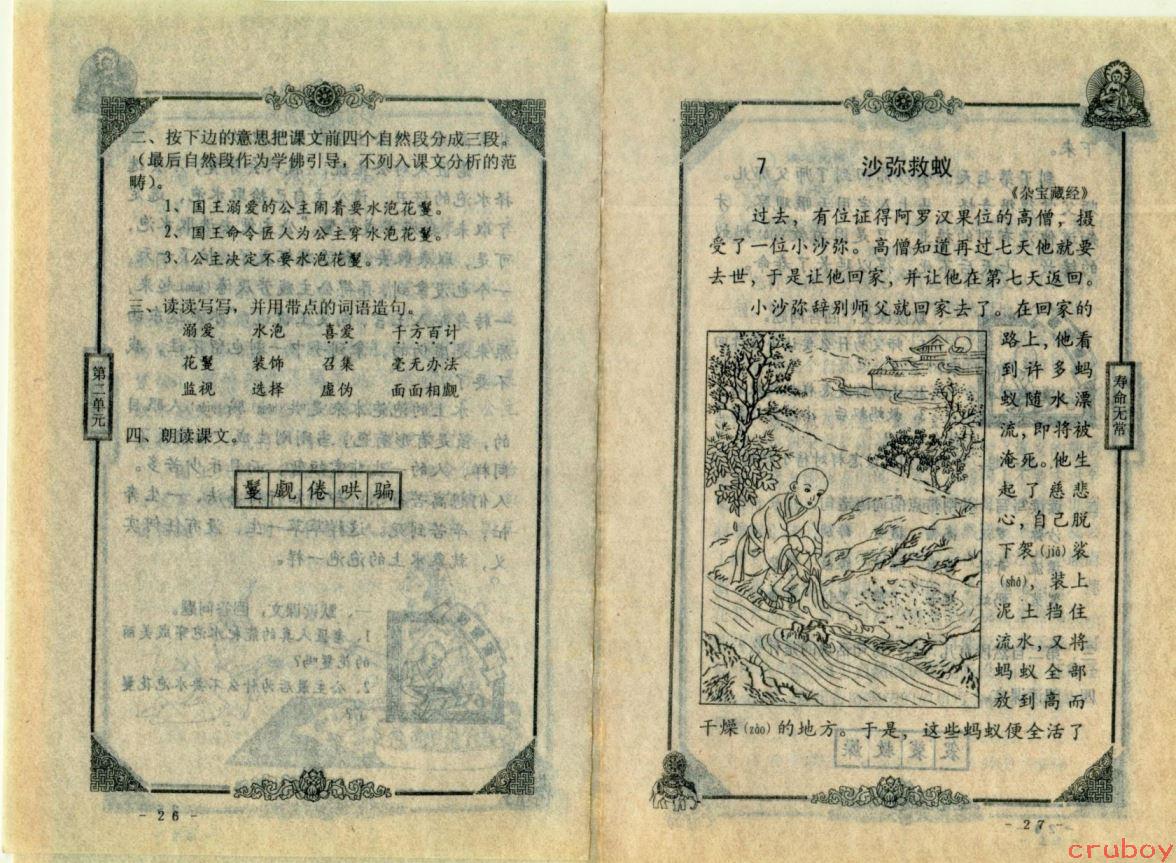 二、按下边的意思把课文前四个自然段分成三段。
（最后自然段作为学佛引导，不列入课文分析的范
畴）。
1、国王溺爱的公主闹着要水泡花鬘。
2、国王命令匠人为公主穿水泡花鬘。
3、公主决定不要水泡花鬘。
三、读读写写，并用带点的词语造句。
溺爱 水泡 喜爱 千方百计
花鬘 装饰 召集 毫无办法
监视 选择 虚伪 面面相觑
四、朗读课文。
鬘觑倦哄骗
第二单元
- 26 -
7 沙弥救蚁
《杂宝藏经》
过去，有位证得阿罗汉果位的高僧，摄
受了一位小沙弥。高僧知道再过七天他就要
去世，于是让他回家，并让他在第七天返回。
小沙弥辞别师父就回家去了。在回家的
路上，他看
到许多蚂
蚁随水漂
流，即将被
淹死。他生
起了慈悲
心，自己脱
下袈(jiā)裟
(shā)，装上
泥土挡住
流水，又将
蚂蚁全部
放到高而
干燥(zào)的地方。于是，这些蚂蚁便全活了
寿命无常
- 27 -
cruboy